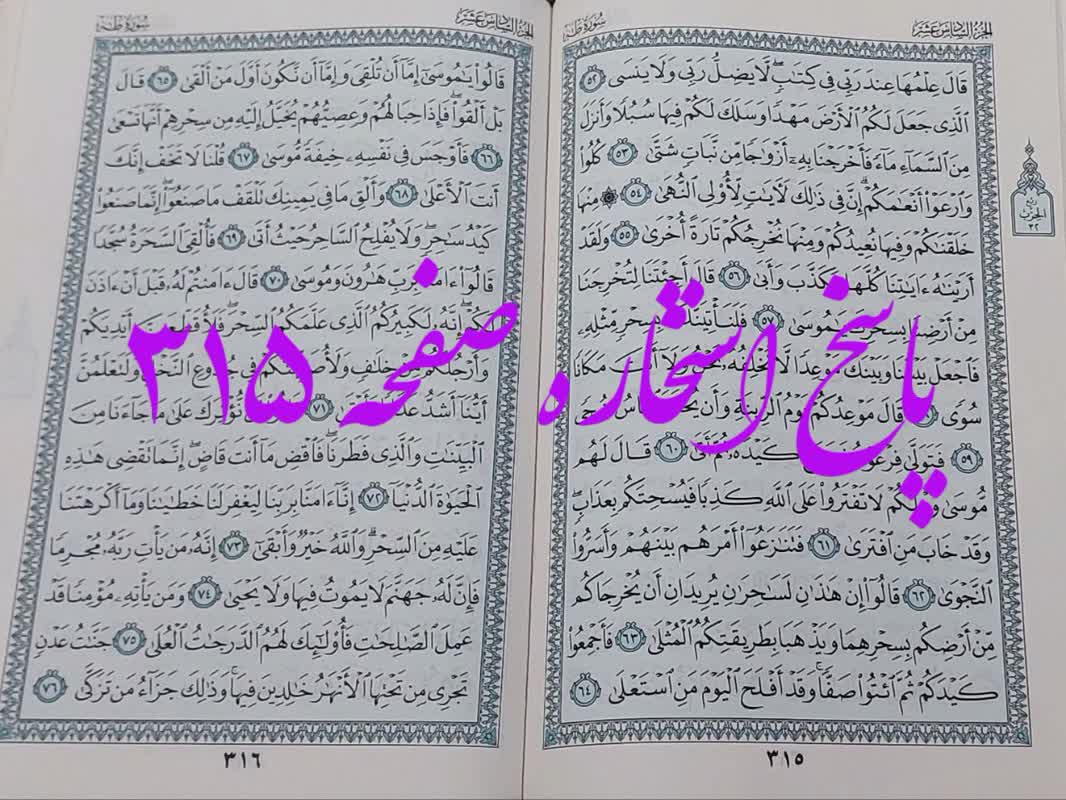 الجزء السادس عشر
سورة طه
قَالَ عِلْمُهَا عِندَ رَبِّى فِى كِتَٰبٍ لَّا يَضِلُّ رَبِّى وَلَا يَنسَى ٥٢
ٱلَّذِى جَعَلَ لَكُمُ ٱلْأَرْضَ مَهْدًا وَسَلَكَ لَكُمْ فِيهَا سُبُلًا وَأَنزَلَ
مِنَ ٱلسَّمَآءِ مَآءً فَأَخْرَجْنَا بِهِۦٓ أَزْوَٰجًا مِّن نَّبَاتٍ شَتَّىٰ ٥٣ كُلُوا۟
وَٱرْعَوْا۟ أَنْعَٰمَكُمْ إِنَّ فِى ذَٰلِكَ لَءَايَٰتٍ لِّأُو۟لِى ٱلنُّهَىٰ ٥٤ ۞ مِنْهَا
خَلَقْنَٰكُمْ وَفِيهَا نُعِيدُكُمْ وَمِنْهَا نُخْرِجُكُمْ تَارَةً أُخْرَىٰ ٥٥ وَلَقَدْ
أَرَيْنَٰهُ ءَايَٰتِنَا كُلَّهَا فَكَذَّبَ وَأَبَىٰ ٥٦ قَالَ أَجِئْتَنَا لِتُخْرِجَنَا
مِنْ أَرْضِنَا بِسِحْرِكَ يَٰمُوسَىٰ ٥٧ فَلَنَأْتِيَنَّكَ بِسِحْرٍ مِّثْلِهِۦ
فَٱجْعَلْ بَيْنَنَا وَبَيْنَكَ مَوْعِدًا لَّا نُخْلِفُهُۥ نَحْنُ وَلَآ أَنتَ مَكَانًا
سُوًى ٥٨ قَالَ مَوْعِدُكُمْ يَوْمُ ٱلزِّينَةِ وَأَن يُحْشَرَ ٱلنَّاسُ ضُحًى
٥٩ فَتَوَلَّىٰ فِرْعَوْنُ فَجَمَعَ كَيْدَهُۥ ثُمَّ أَتَىٰ ٦٠ قَالَ لَهُم
مُّوسَىٰ وَيْلَكُمْ لَا تَفْتَرُوا۟ عَلَى ٱللَّهِ كَذِبًا فَيُسْحِتَكُم بِعَذَابٍ
وَقَدْ خَابَ مَنِ ٱفْتَرَىٰ ٦١ فَتَنَٰزَعُوٓا۟ أَمْرَهُم بَيْنَهُمْ وَأَسَرُّوا۟
ٱلنَّجْوَىٰ ٦٢ قَالُوٓا۟ إِنْ هَٰذَٰنِ لَسَٰحِرَٰنِ يُرِيدَانِ أَن يُخْرِجَاكُم
مِّنْ أَرْضِكُم بِسِحْرِهِمَا وَيَذْهَبَا بِطَرِيقَتِكُمُ ٱلْمُثْلَىٰ ٦٣ فَأَجْمِعُوا۟
كَيْدَكُمْ ثُمَّ ٱئْتُوا۟ صَفًّا وَقَدْ أَفْلَحَ ٱلْيَوْمَ مَنِ ٱسْتَعْلَىٰ ٦٤
٣١٥
ربع
الحزب
٣٢
الجزء السادس عشر
سورة طه
قَالُوا۟ يَٰمُوسَىٰٓ إِمَّآ أَن تُلْقِىَ وَإِمَّآ أَن نَّكُونَ أَوَّلَ مَنْ أَلْقَىٰ ٦٥ قَالَ
بَلْ أَلْقُوا۟ فَإِذَا حِبَالُهُمْ وَعِصِيُّهُمْ يُخَيَّلُ إِلَيْهِ مِن سِحْرِهِمْ أَنَّهَا تَسْعَىٰ
٦٦ فَأَوْجَسَ فِى نَفْسِهِۦ خِيفَةً مُّوسَىٰ ٦٧ قُلْنَا لَا تَخَفْ إِنَّكَ
أَنتَ ٱلْأَعْلَىٰ ٦٨ وَأَلْقِ مَا فِى يَمِينِكَ تَلْقَفْ مَا صَنَعُوٓا۟ إِنَّمَا صَنَعُوا۟
كَيْدُ سَٰحِرٍ وَلَا يُفْلِحُ ٱلسَّاحِرُ حَيْثُ أَتَىٰ ٦٩ فَأُلْقِىَ ٱلسَّحَرَةُ سُجَّدًا
قَالُوٓا۟ ءَامَنَّا بِرَبِّ هَٰرُونَ وَمُوسَىٰ ٧٠ قَالَ ءَامَنتُمْ لَهُۥ قَبْلَ أَنْ ءَاذَنَ
لَكُمْ إِنَّهُۥ لَكَبِيرُكُمُ ٱلَّذِى عَلَّمَكُمُ ٱلسِّحْرَ فَلَأُقَطِّعَنَّ أَيْدِيَكُمْ
وَأَرْجُلَكُم مِّنْ خِلَٰفٍ وَلَأُصَلِّبَنَّكُمْ فِى جُذُوعِ ٱلنَّخْلِ وَلَتَعْلَمُنَّ
أَيُّنَآ أَشَدُّ عَذَابًا وَأَبْقَىٰ ٧١ قَالُوا۟ لَن نُّؤْثِرَكَ عَلَىٰ مَا جَآءَنَا مِنَ
ٱلْبَيِّنَٰتِ وَٱلَّذِى فَطَرَنَا فَٱقْضِ مَآ أَنتَ قَاضٍ إِنَّمَا تَقْضِى هَٰذِهِ
ٱلْحَيَوٰةَ ٱلدُّنْيَآ ٧٢ إِنَّآ ءَامَنَّا بِرَبِّنَا لِيَغْفِرَ لَنَا خَطَٰيَٰنَا وَمَآ أَكْرَهْتَنَا
عَلَيْهِ مِنَ ٱلسِّحْرِ وَٱللَّهُ خَيْرٌ وَأَبْقَىٰٓ ٧٣ إِنَّهُۥ مَن يَأْتِ رَبَّهُۥ مُجْرِمًا
فَإِنَّ لَهُۥ جَهَنَّمَ لَا يَمُوتُ فِيهَا وَلَا يَحْيَىٰ ٧٤ وَمَن يَأْتِهِۦ مُؤْمِنًا قَدْ
عَمِلَ ٱلصَّٰلِحَٰتِ فَأُو۟لَٰٓئِكَ لَهُمُ ٱلدَّرَجَٰتُ ٱلْعُلَىٰ ٧٥ جَنَّٰتُ عَدْنٍ
تَجْرِى مِن تَحْتِهَا ٱلْأَنْهَٰرُ خَٰلِدِينَ فِيهَا وَذَٰلِكَ جَزَآءُ مَن تَزَكَّىٰ ٧٦
٣١٦
پاسخ استخاره صفحه ۳۱۵